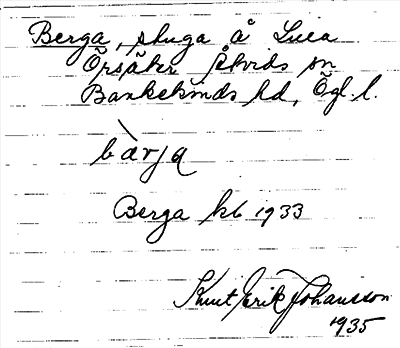 Berga, stuga å Luca
Örsäter Åtvids sn
Bankekinds hd, Ögl. l.
bàrja
Berga kb 1933
Knut Erik Johansson
1935